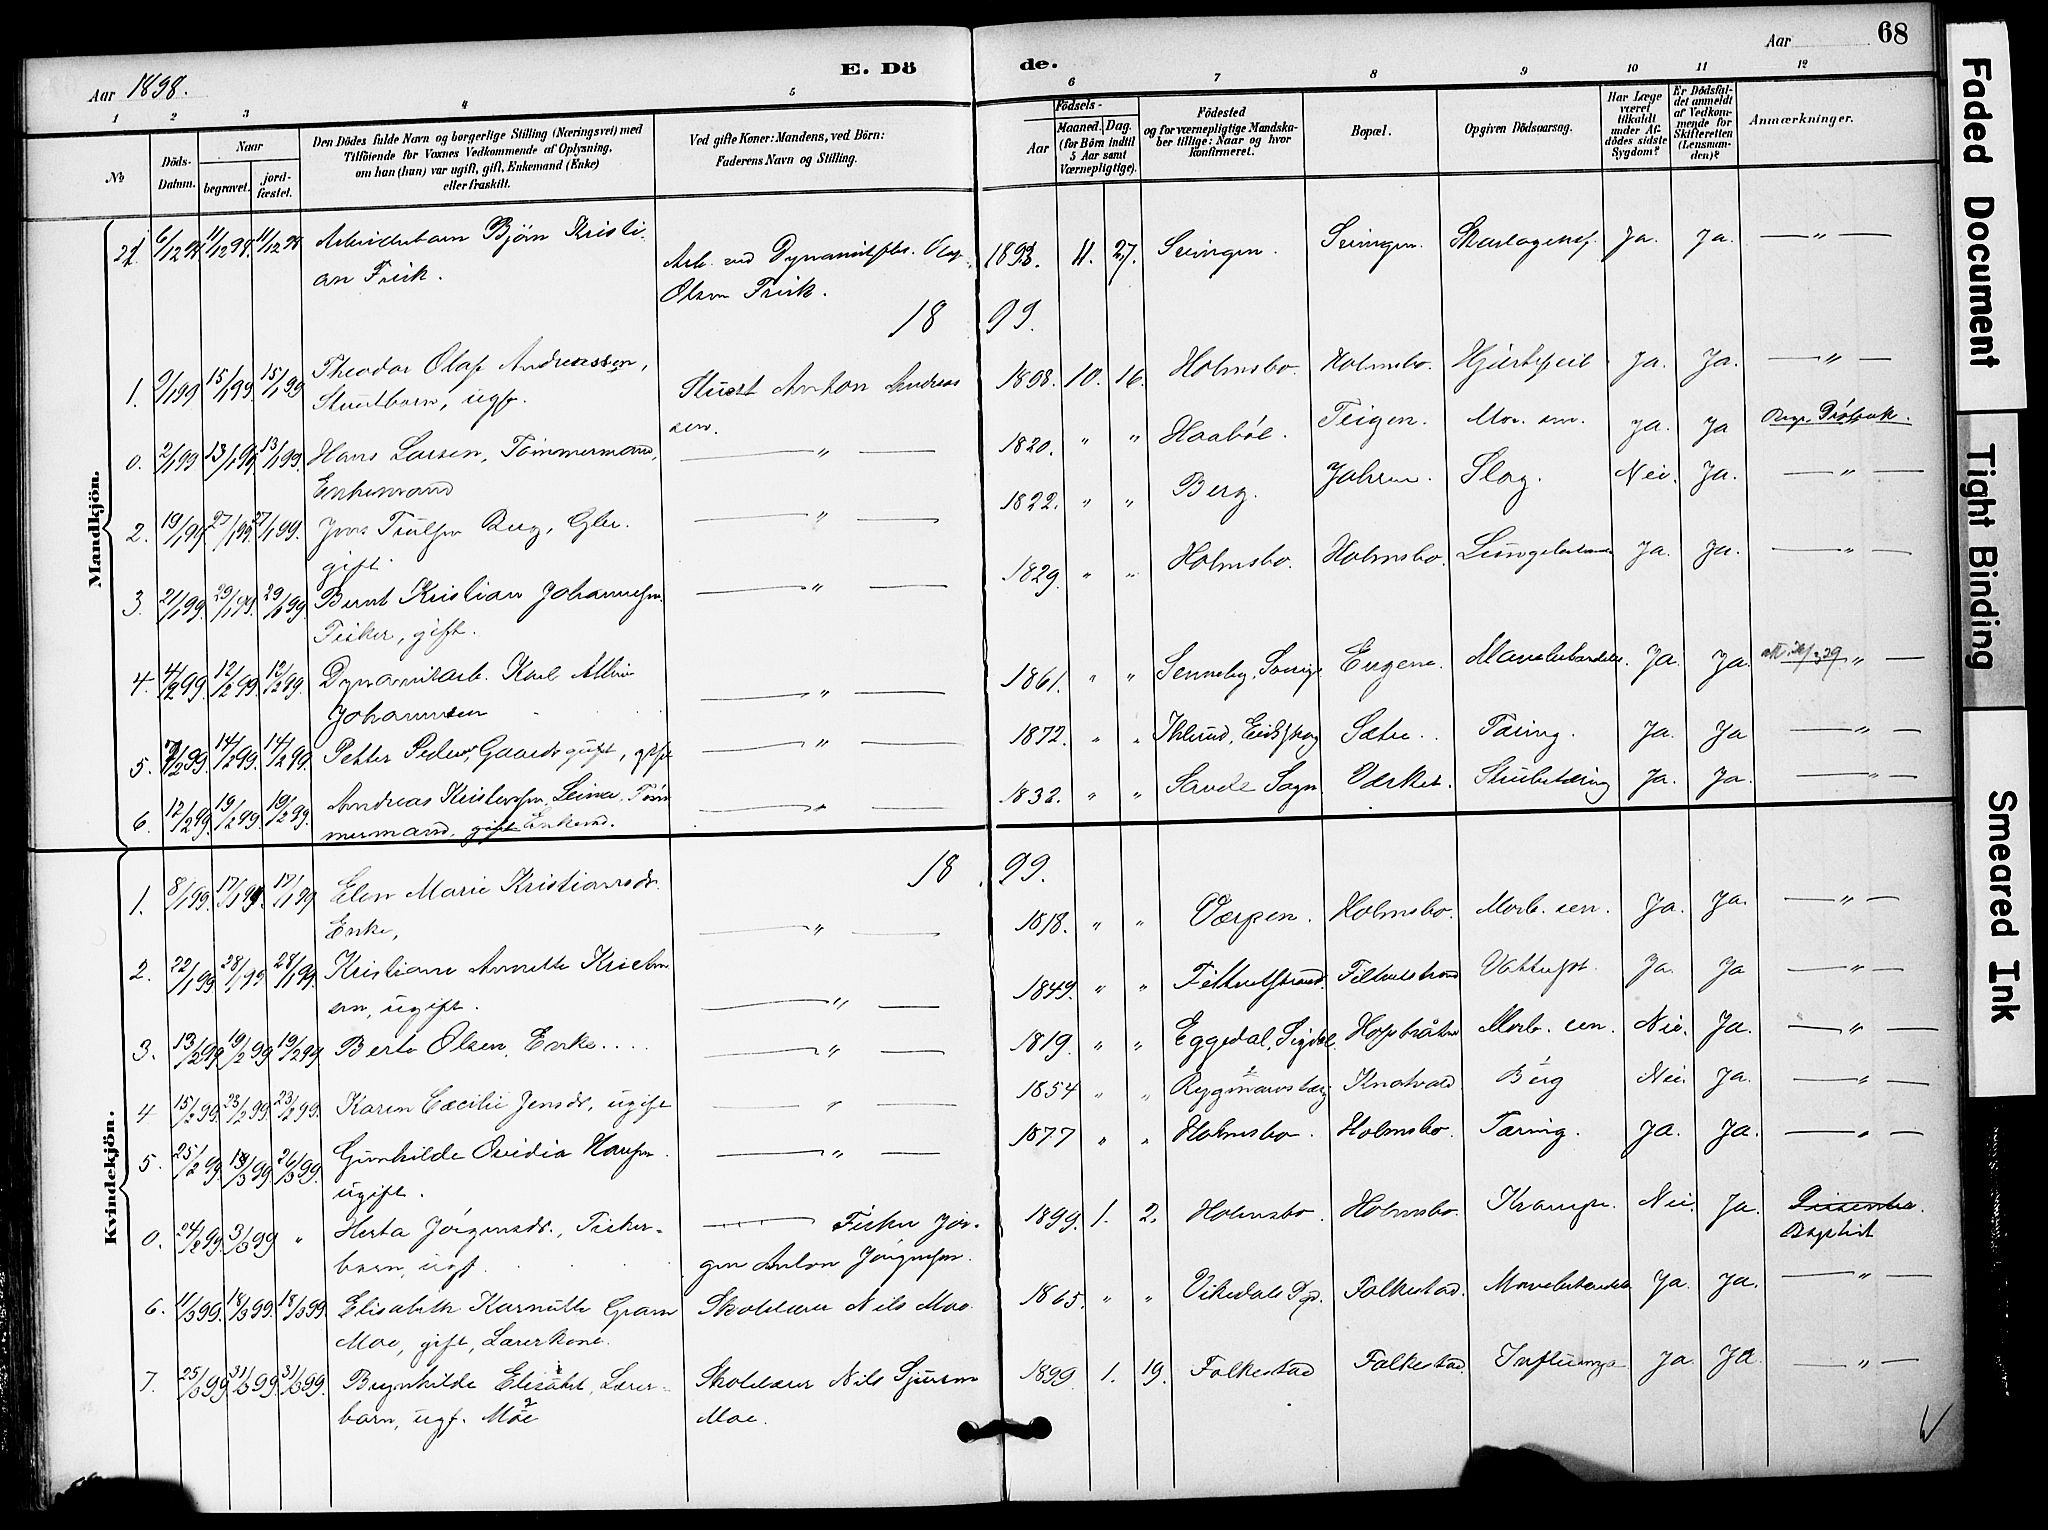 68
Aar 1898.
E. Dö
de.
Aar
1 2 3 4 5
6 7 8 9 10 11 12
No
Döds-Datum.
Naar
begravet.
jord-fæstet.
Den Dödes fulde Navn og borgerlige Stilling (Næringsvei) med
Tilföiende for Voxnes Vedkommende af Oplysning,
om han (hun) var ugift, gift, Enkemand (Enke)
eller fraskilt.
Ved gifte Koner: Mandens, ved Börn:
Faderens Navn og Stilling.
Födsels-
Aar
Maaned. Dag.
(for Börn indtil
5 Aar samt
Værnepligtige).
Födested
og for værnepligtige Mandska-
ber tillige: Naar og hvor
konfirmeret.
Bopæl.
Opgiven Dödsaarsag.
Har Læge
været
tilkaldt
under Af-
dödes sidste
Sygdom?
Er Dödsfal-
det anmeldt
af Vedkom-
mende for
Skifteretten
(Lensman-
den)?
Anmærkninger.
Mandkjön.
6/12 98 11/12 98. 11/12 98 Arbeiderbarn Bjørn Kristi- 1893. 11. 27. Ja. Ja. — " —
an Frick. Arb. ved Dynamitfbr. Olaf
Olsen Frick.
1899.
1. 9/1 99 15/1 99. 15/1 99 Theodor Olaf Andreassen, 1898. 10. 16. Holmsbo. Holmsbo. Hjertefeil Ja. Ja. — " —
Anton Andreas
ugf. sen.
0. 2/1 99 13/1 99 13/1 99. Hans Larsen, Tømmermand, — " — 1820. " " Haabøl. Teigen. Mor. sen. Ja. Ja
Enkemand
2. 19/1 99 27/1 99. 27/1 99. Jens Berg, — " — 1822. " " Berg. Jahren. Slag. Nei. Ja. — " —
gift.
3. 21/1 99. 29/1 99. 29/1 99 Bernt Kristian Johannesen. — " — 1829. " " Holmsbo. Holmsbo. Ja. Ja. — " —
Fisker, gift.
4. 4/2 99 12/2 99. 12/2 99. Dynamitarb. Karl Albin — " — 1861. " " Engene. Ja. Ja. " —
Johannsen
5. 14/2 99. 14/2 99. Petter Peders. Gaardsgut, gift — " — 1872. " " Sætre. Tæring. Ja. Ja — " —
6. 12/2 99 19/2 99. 19/2 99. Andreas Kristensen Leina, Tøm — " — 1832. " " Sande Sogn Værket. Strubetæring Ja. Ja. — " —
mermand, gift Enkemd.
Kvindekjön.
1899.
1. 8/1 99. 17/1 99. 17/1 99 Elen Marie Kristiansdr. 1818. " " Værpen. Holmsbo. Morb. sen. Ja. Ja. — " —
Enke, — " —
2. 22/1 99 28/1 99 28/1 99. Kristiane Annette 1849. " " Filtvetstrand. Filtvetstrand Vattersot. Ja. Ja — " —
sen, ugift. — " —
3. 13/2 99 19/2 99 19/2 99 Berte Olsen, Enke.... — " — 1819. " " Eggedal, Sigdal. Morb. sen. Nei. Ja. — " —
4 15/2 99. 23/2 99 23/2 99. Karen Cæcilie Jensdr., ugift — " — 1854 " " Knatvold Nei. Ja. — " —
5. 25/2 99. 26/3 99. Gunhilde Ovidia Hansen. — " — 1877 " " Holmsbo. Holmsbo. Tæring. Ja. Ja. — " —
ugift.
0. 24/2 99 3/3 99 " Herta Jörgensdr., Fisker- Fisker Jör- 1899. 1. 2. Holmsbo. Holmsbo. Krampe. Nei. Ja. Dissenter.
barn, ugf. gen Anton Jörgensen. Baptist
6. 11/3 99. 18/3 99. 18/3 99. Elisabeth Karnitte Gram Skolelærer Nils Moe. 1865. " " Vikedals Folkestad. Ja. Ja. — " —
Moe, gift, Lærerkone.
7. 25/3 99 31/3 99. 31/3 99. Brynhilde Elisabet, Lærer- Skolelærer Nils Sjursen 1899 1. 19. Folkestad Folkestad. Influenza Ja. Ja. — " —
barn, ugf. Moe Moe.
Faded Document
Tight Binding
Smeared Ink